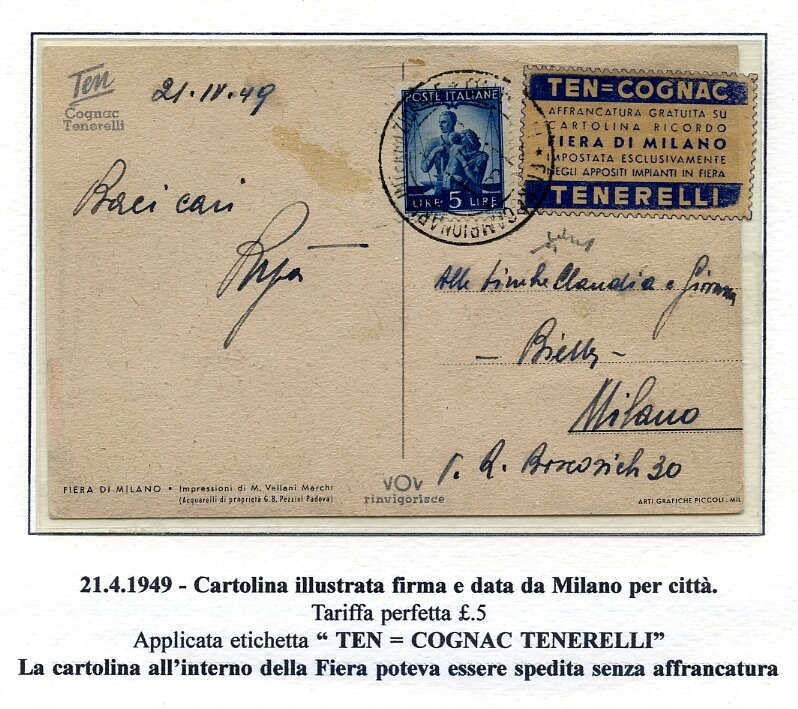 Ten
Cognac
Tenerelli
21·IV·49
POSTE ITALIANE
LIRE 5 LIRE
TEN=COGNAC
AFFRANCATURA GRATUITA SU
CARTOLINA RICORDO
FIERA DI MILANO
IMPOSTATA ESCLUSIVAMENTE
NEGLI APPOSITI IMPIANTI IN FIERA
TENERELLI
Baci cari
Alle bimbe Claudia e
Milano
30
FIERA DI MILANO • Impressioni di M. Vellani Marchi
(Acquarelli di proprietà G. B. Pezziol Padova)
VOV
rinvigorisce
ARTI GRAFICHE PICCOLI - MIL
21.4.1949 - Cartolina illustrata firma e data da Milano per città.
Tariffa perfetta £.5
Applicata etichetta “ TEN = COGNAC TENERELLI”
La cartolina all’interno della Fiera poteva essere spedita senza affrancatura